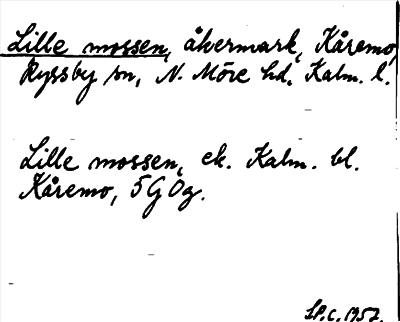 Lille mossen, åkermark, Kåremo,
Ryssby sn, N. Möre hd. Kalm. l.
Lille mossen, ek. Kalm. bl.
Kåremo, 5G Og.
1957.